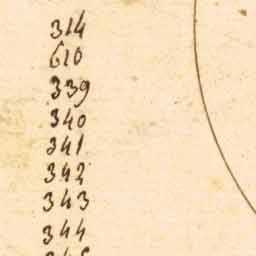 314
610
339
340
341
342
343
344